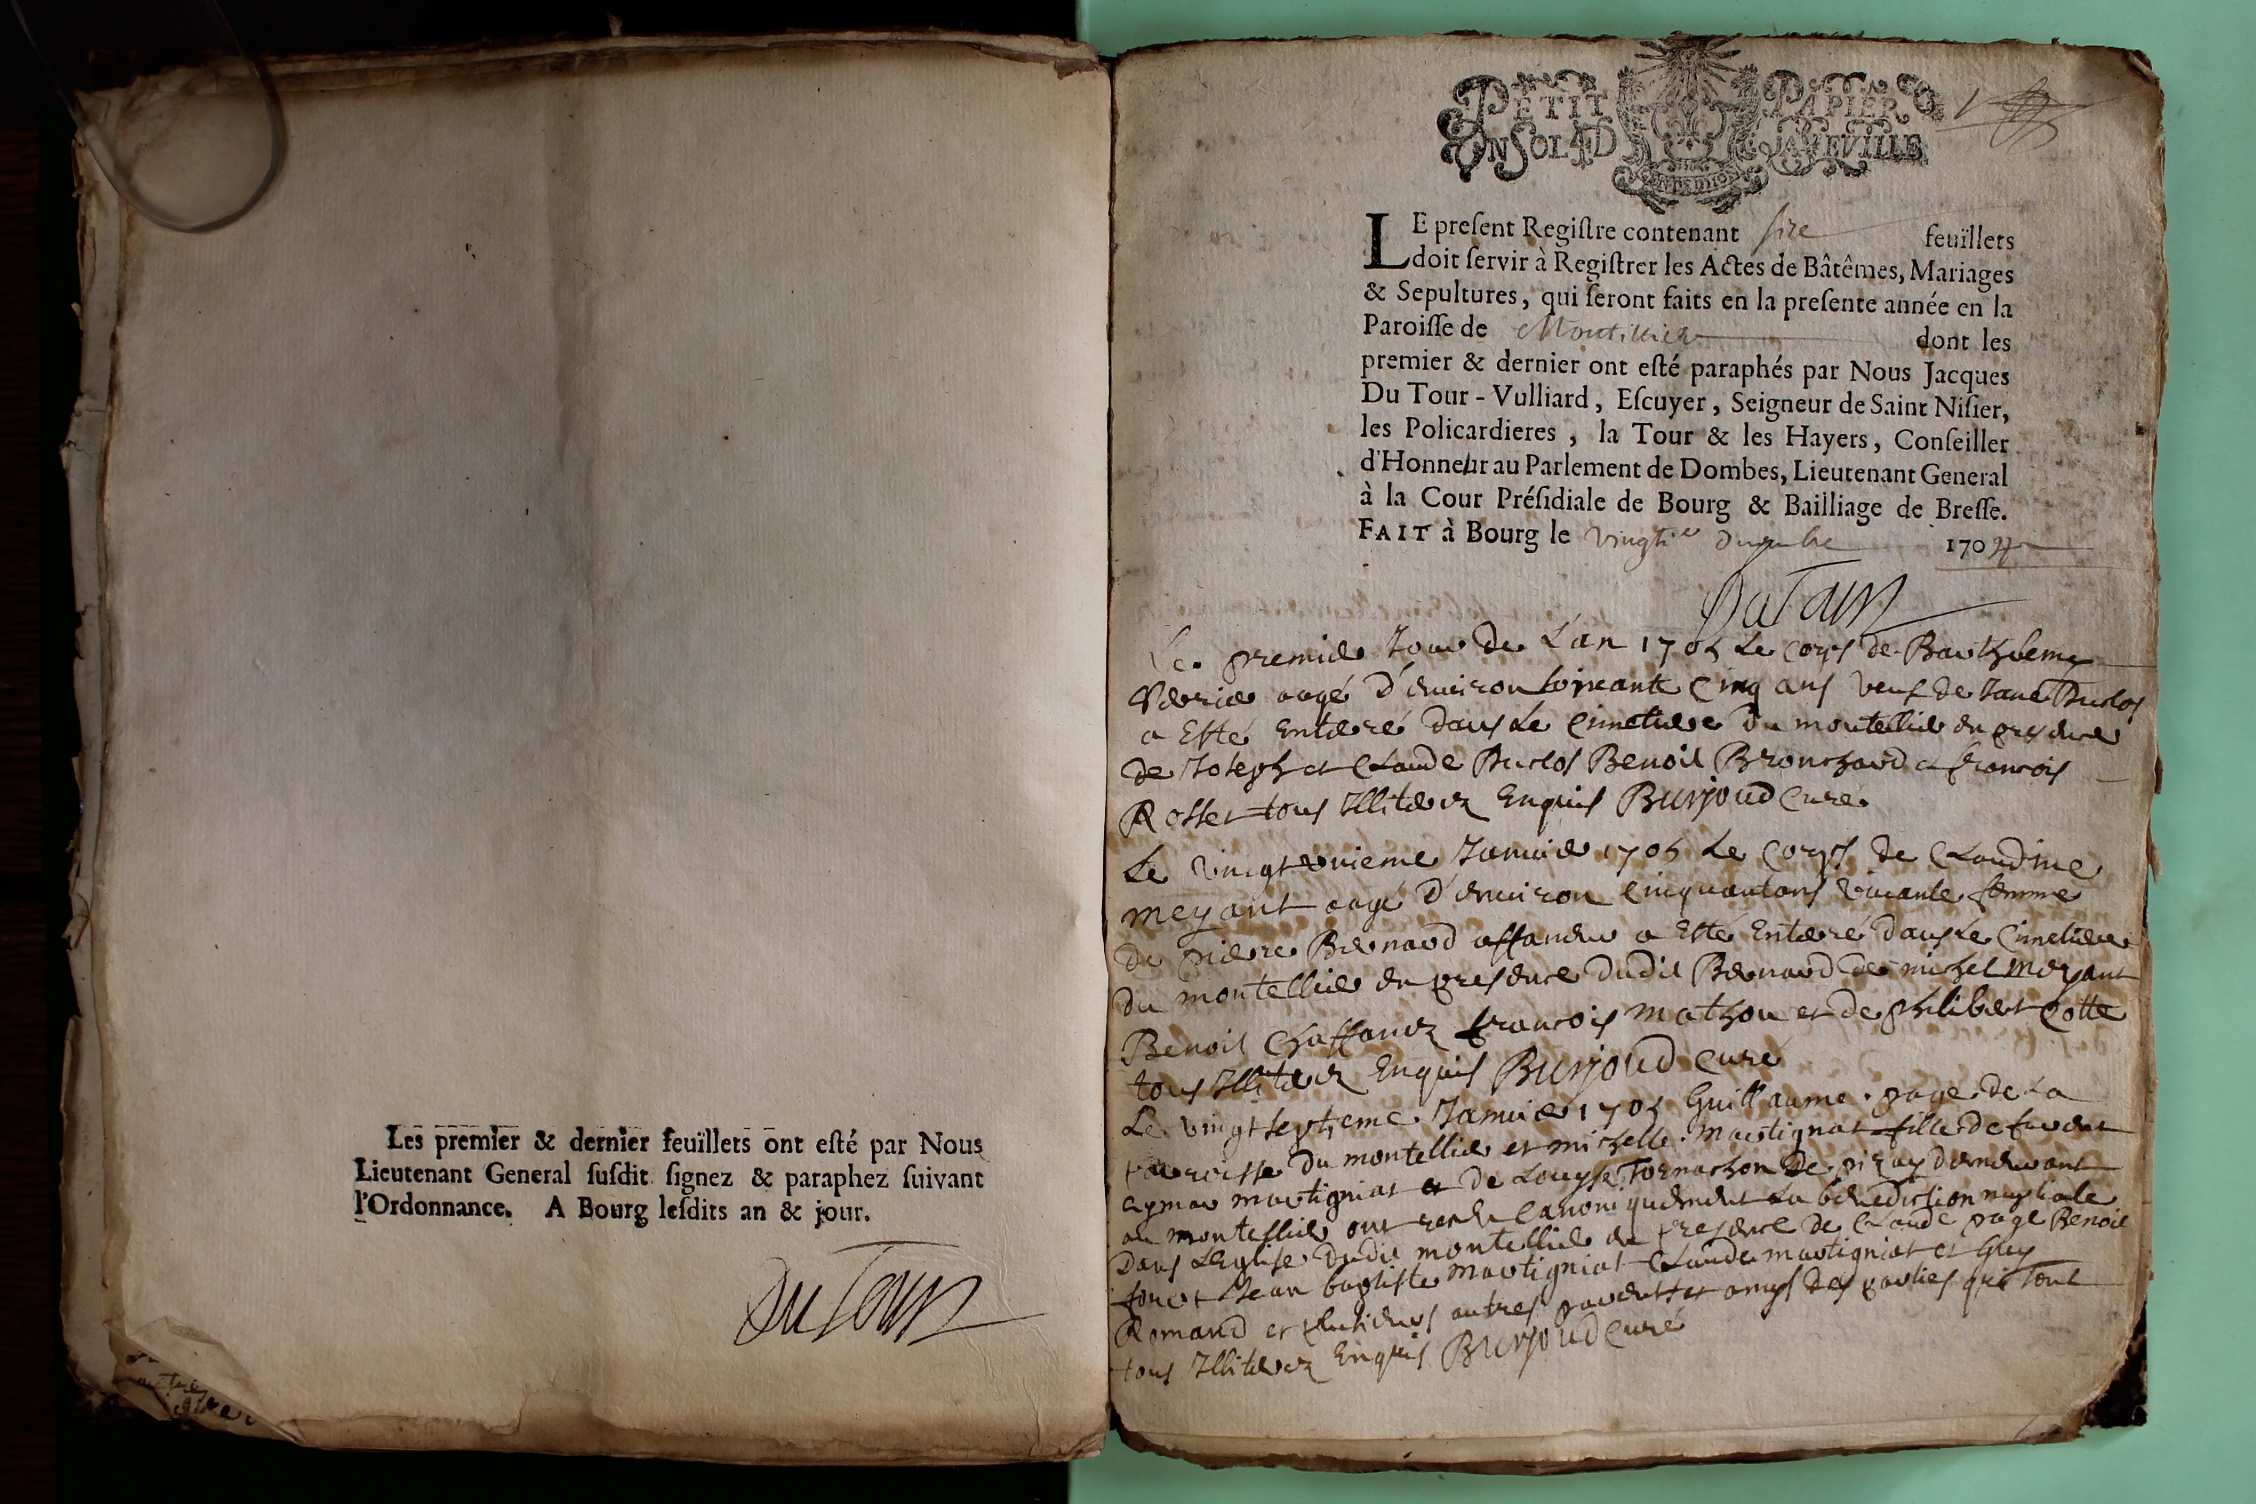 Les premier & dernier feuïllets ont esté par Nous
Lieutenant General susdit signez & paraphez suivant
l'Ordonnance. A Bourg lesdits an & jour.
DuTour
PETIT PAPIER
UN SOL 4 D LA FEVILLE
LE present Registre contenant size feuïllets
doit servir à Registrer les Actes de Bâtêmes, Mariages
& Sepultures, qui seront faits en la presente année en la
Paroisse de Montellier dont les
premier & dernier ont esté paraphés par Nous Jacques
Du Tour - Vulliard, Escuyer, Seigneur de Saint Nisier,
les Policardieres, la Tour & les Hayers, Conseiller
d'Honneur au Parlement de Dombes, Lieutenant General
à la Cour Présidiale de Bourg & Bailliage de Bresse.
FAIT à Bourg le vingtie decembre 1704
DuTour
Le premier Jour de L'an 1705 Le Corps de Barthelemy
aagé d'environ soixante Cinq ans veuf de Jane Duclos
a Esté Enterré dans Le Cimetiere du montellier en presence
de Joseph et Claude Duclos Benoit Bronchard et francois
Rosset tous Illiterez Enquis Burjoud Curé
Le vingt unieme Janvier 1705 Le Corps de Claudine
meyant aagé d'environ Cinquantans vivante femme
de pierre Bernard a Esté Enterré dans Le Cimetiere
du montellier en presence dudit Bernard de michel meyant
Benoit Chaffanez francois mathon et de philibert Cotte
tous Illiterez Enquis Burjoud Curé
Le vingt septieme Janvier 1705 Guillaume page de La
parroisse du montellier et michelle martignat fille de
aymar martigniat et de Louyse Tornachon de pizay demeurant
au montellier ont receu Canoniquement La benediction nuptiale
Dans L'Eglise dudit montellier en presence de Claude page Benoit
Jean baptiste martigniat Claude martigniat et Guy
Romand et plusieurs autres parents et amys des parties qui sont
tous Illiterez Enquis Burjoud Curé